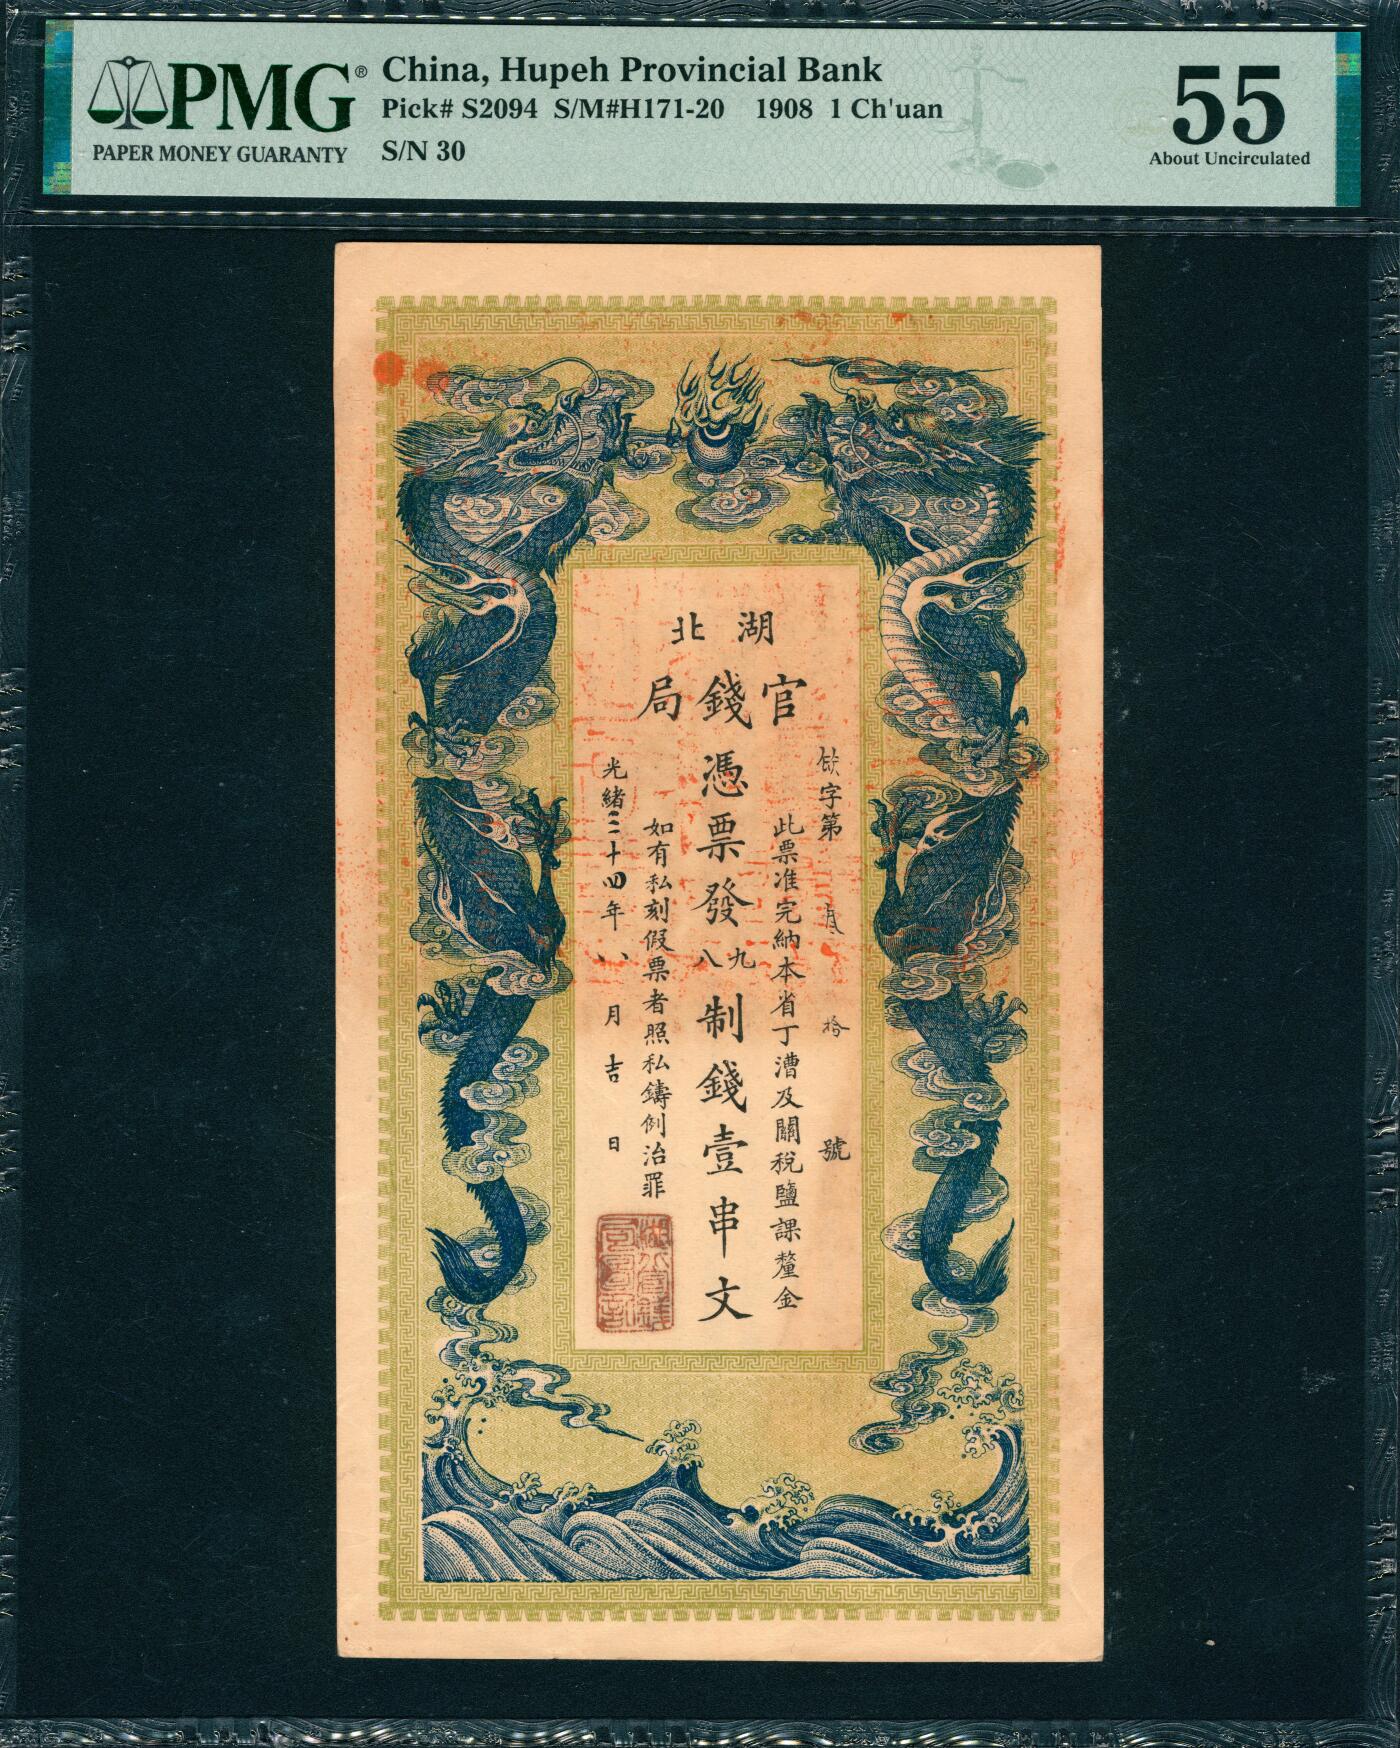 PMG®
PAPER MONEY GUARANTY
China, Hupeh Provincial Bank
Pick# S2094 S/M#H171-20 1908 1 Ch'uan
S/N 30
55
About Uncirculated
湖北
官錢局
字第 拾 號
此票准完納本省丁漕及關稅鹽課釐金
憑票發九八制錢壹串文
如有私刻假票者照私鑄例治罪
光緒三十四年八月吉日